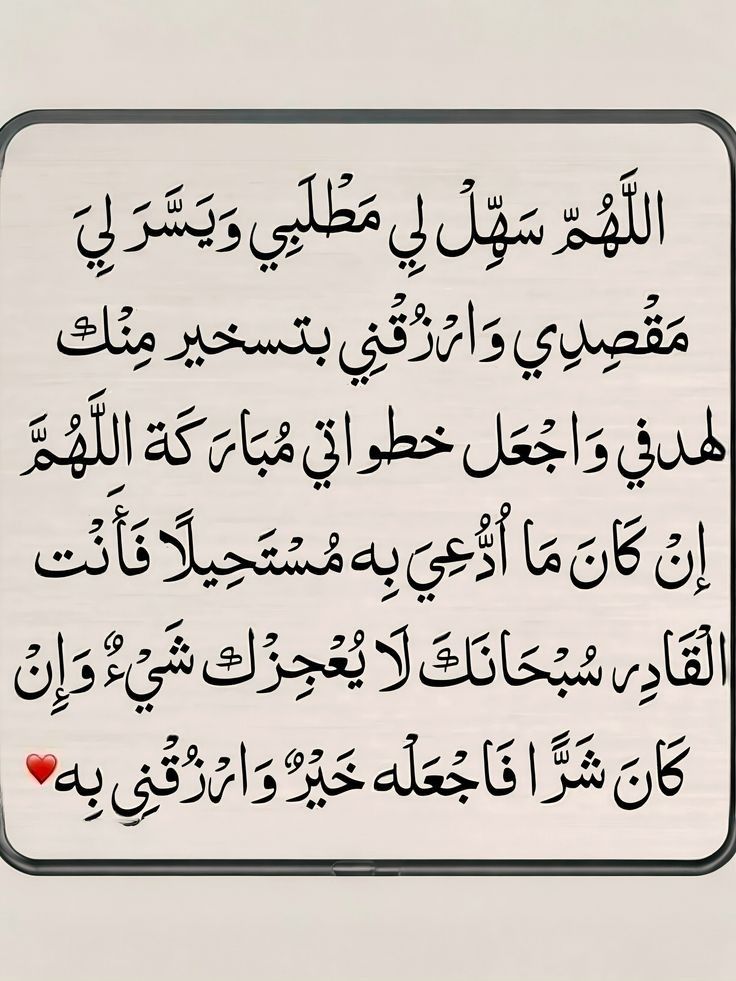 اللَّهُمّ سَهِّلْ لِي مَطْلَبِي وَيَسَّرَ لِيَ
مَقْصِدِي وَارْزُقْنِي بتسخير مِنْك
لهدفي وَاجْعَل خطواتي مُبَارَكَة اللَّهُمَّ
إنْ كَانَ مَا اُدُّعِيَ بِه مُسْتَحِيلًا فَأَنْت
الْقَادِر سُبْحَانَكَ لَا يُعْجِزْك شَيْءٌ وَإِنْ
كَانَ شَرًّا فَاجْعَلْه خَيْرٌ وَارْزُقْنِي بِه❤️